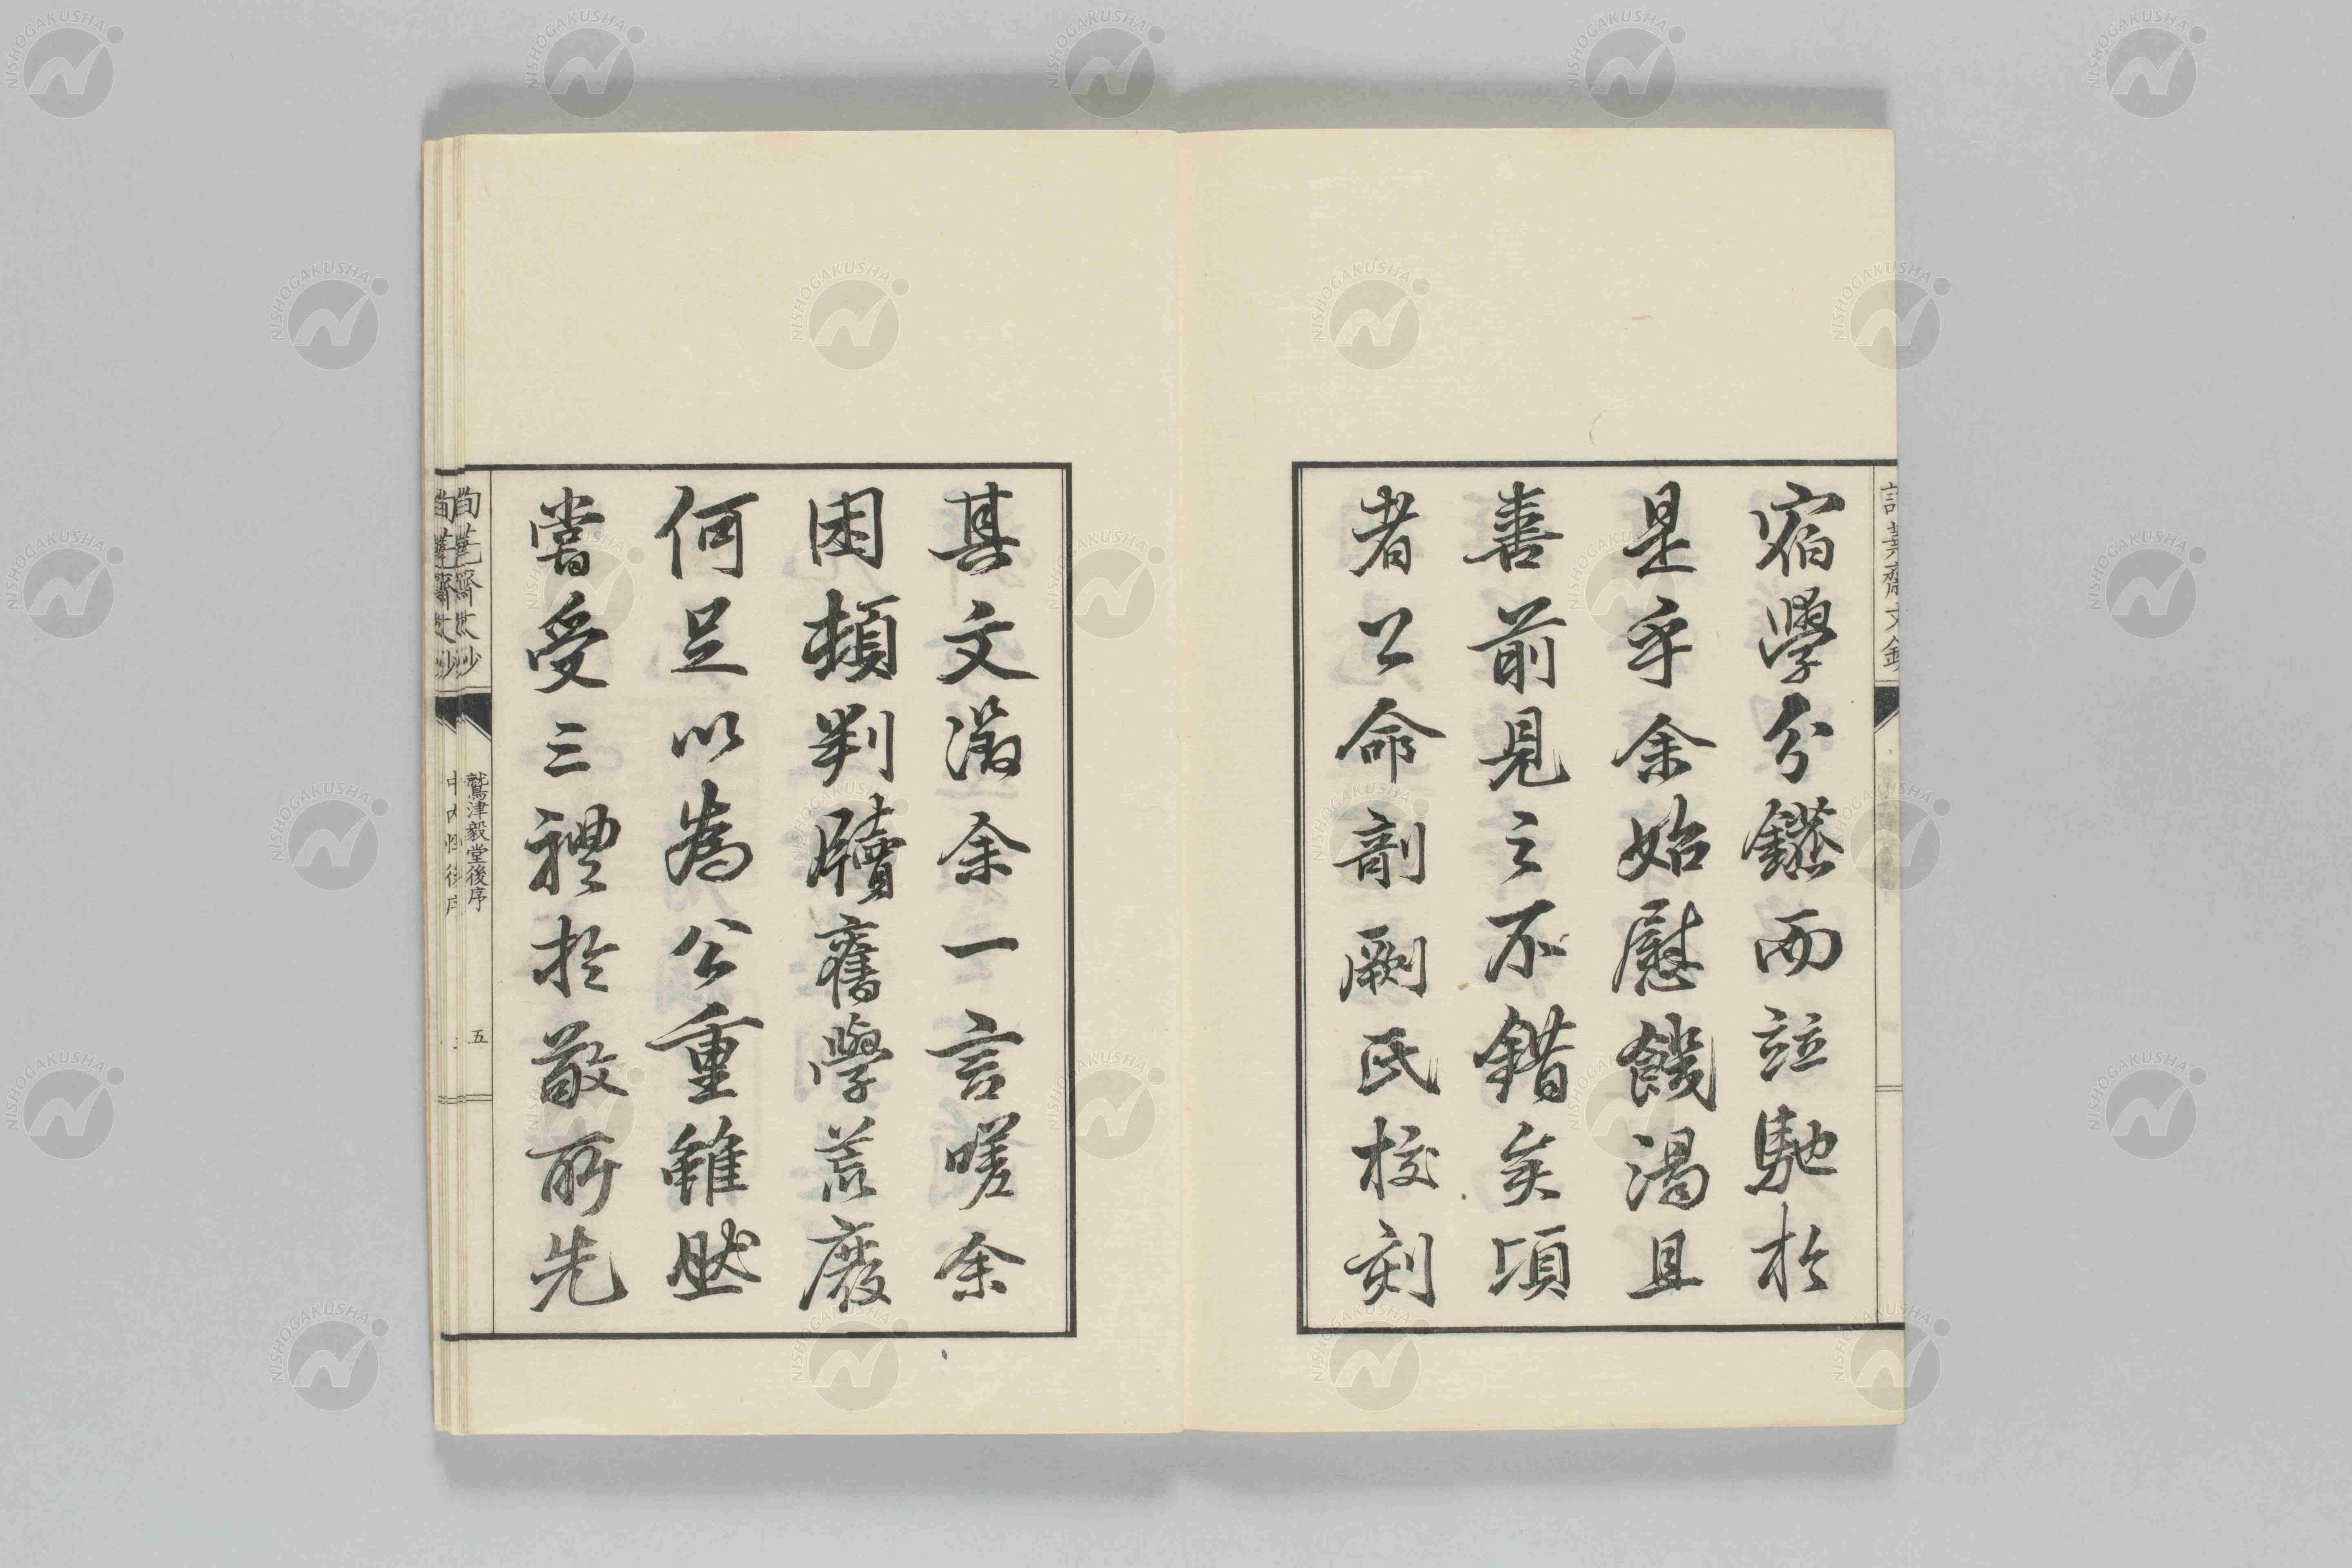 宿學分鑣而竝馳於
是乎余始慰饑渴且
善前見之不錯矣頃
者公命剞劂氏校刻
其文徵余一言嗟余
困頓判牘舊學荒廢
何足以為公重雖然
嘗受三禮於敬所先
鷲津毅堂後序
五
NISHOGAKUSHA